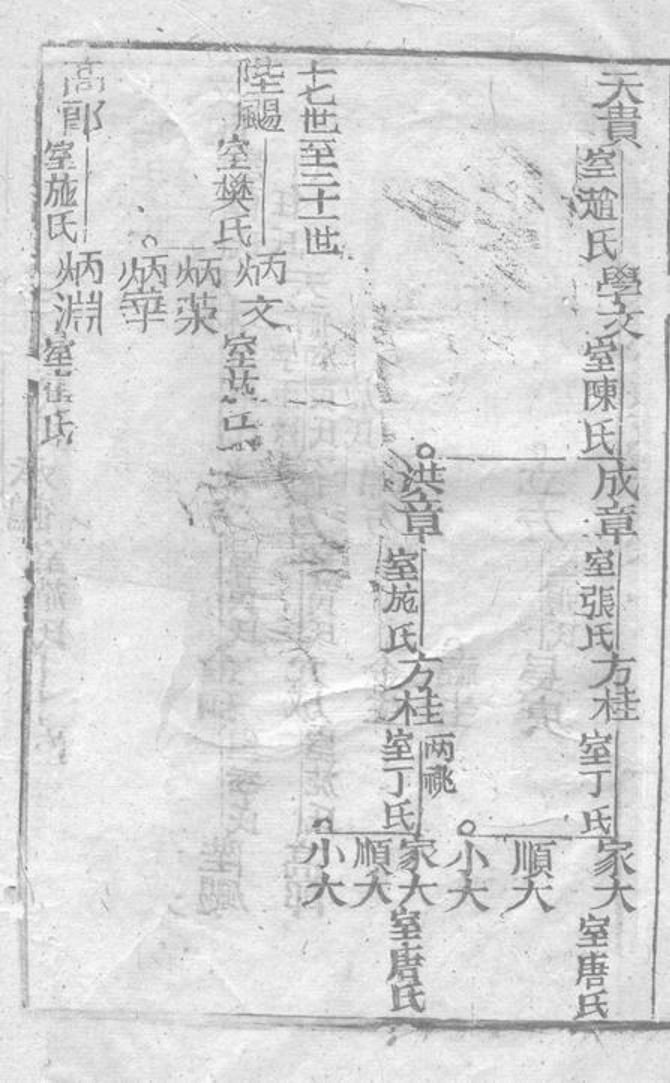 天貴 室趙氏 學文 室陳氏 成章 室張氏 方桂 室丁氏 家大 室唐氏
順大
小大
洪章 室施氏 方桂 兩祧 室丁氏 家大 室唐氏
順大
小大
十七世至二十一世
陛颺 室樊氏 炳文 室
炳榮
炳華
高郎 室施氏 炳淵 室 氏